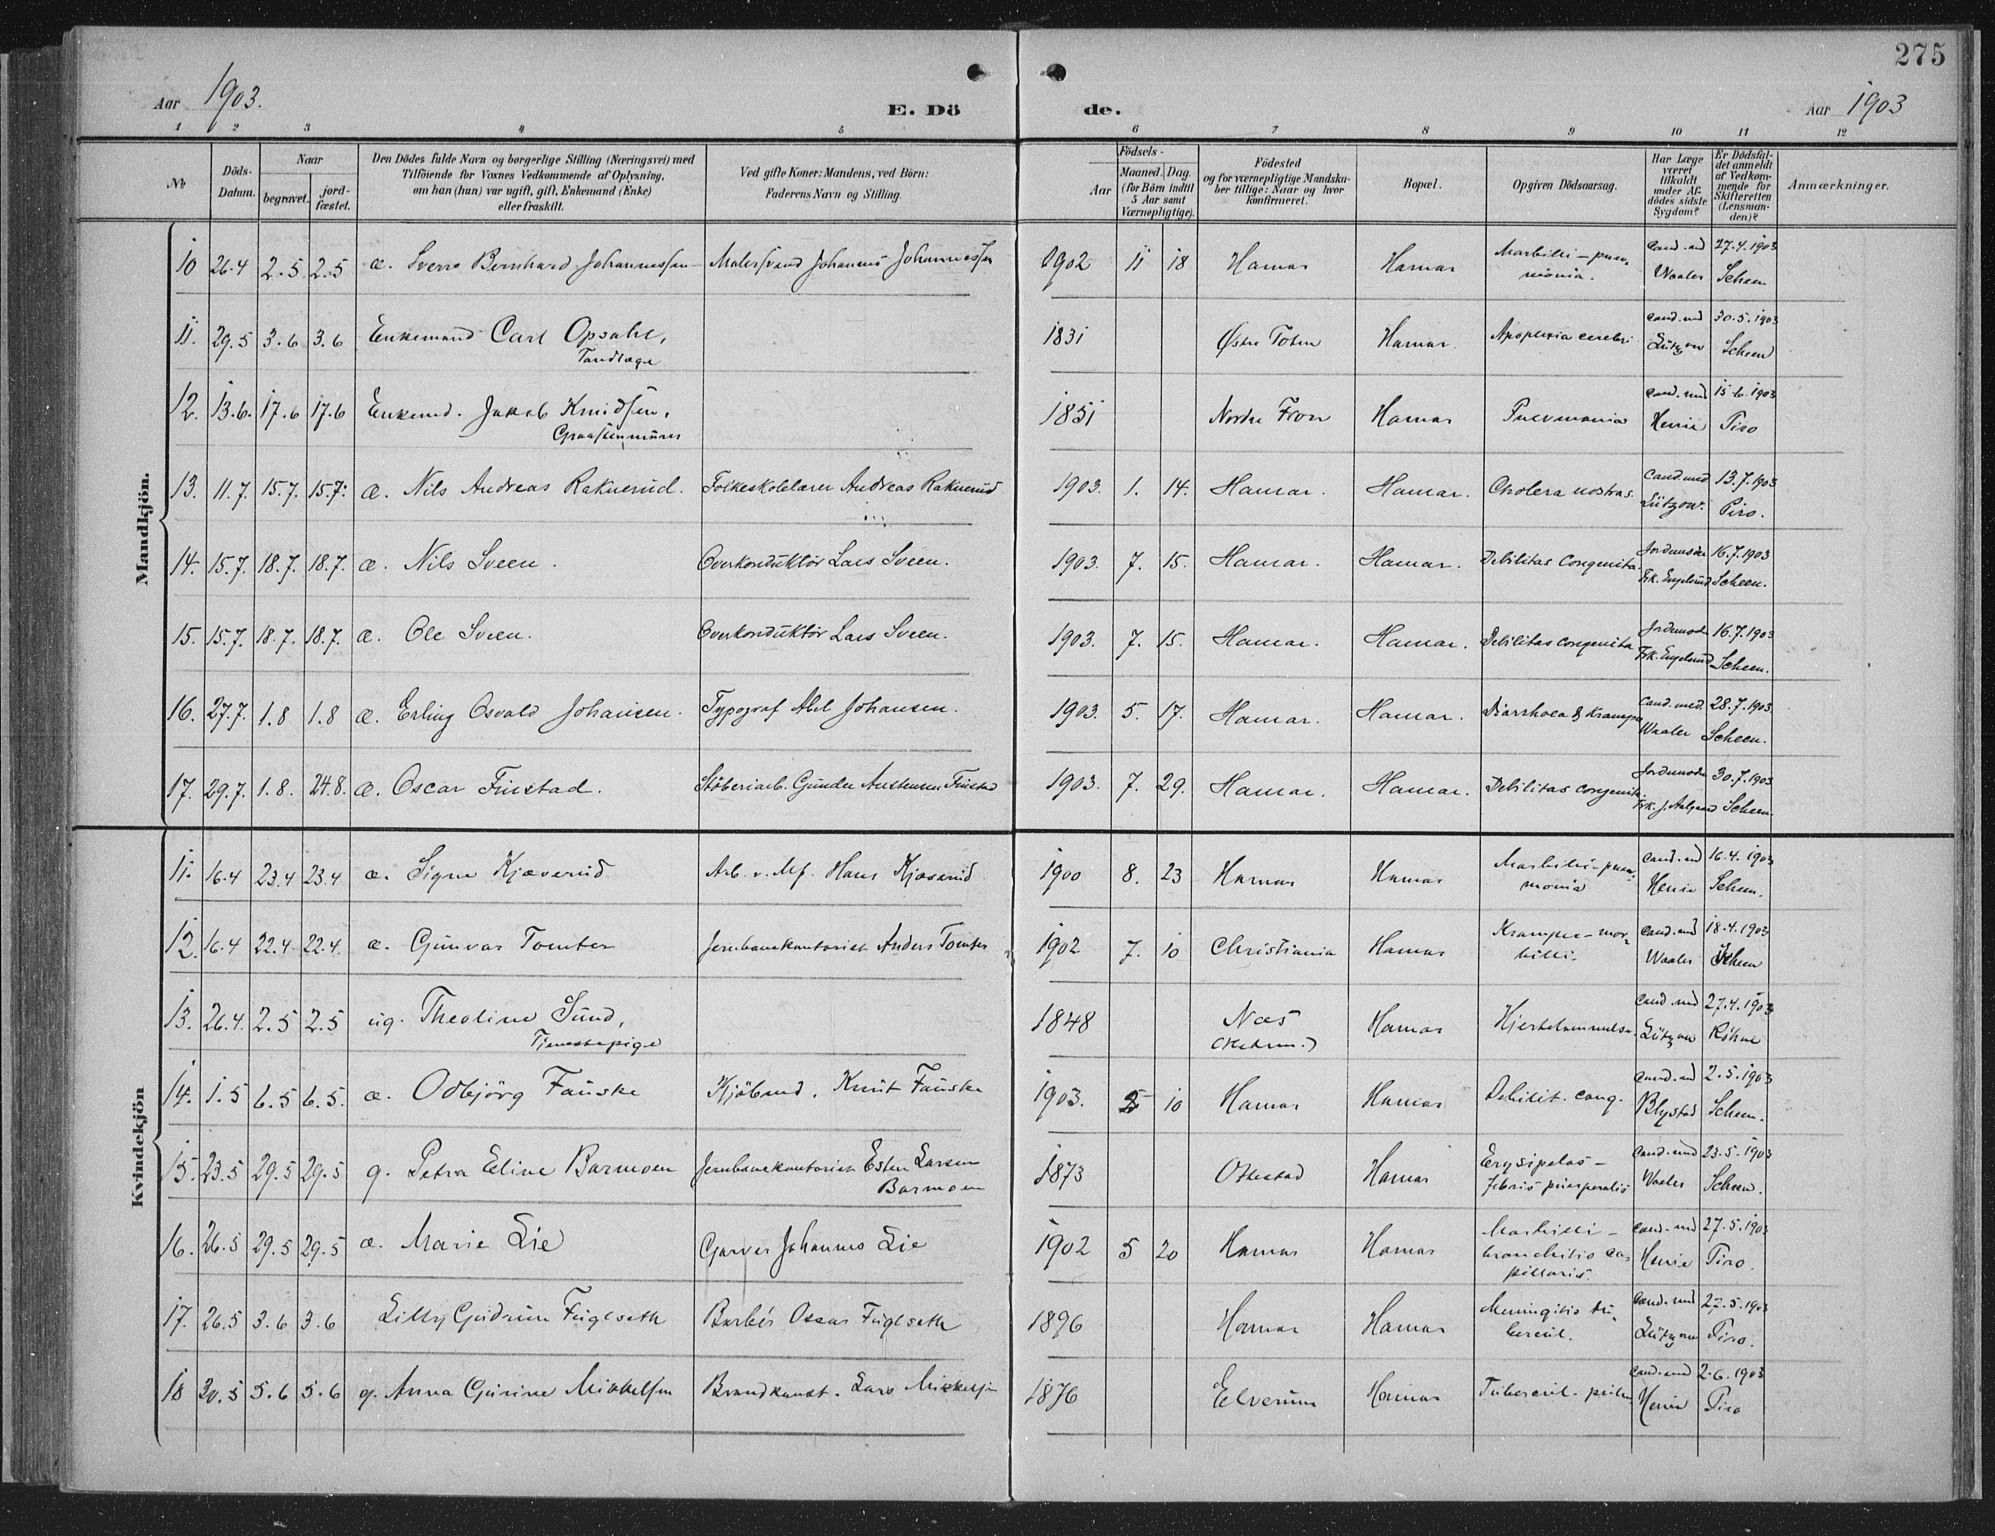 275
Aar 1903.
E. Döde.
Aar 1903
1 2 3 4 5 6 7 8 9 10 11 12
No.
Döds-Datum.
Naar
begravet.
jord-fæstet.
Den Dödes fulde Navn og borgerlige Stilling (Næringsvei) med
Tilföiende for Voxnes Vedkommende af Oplysning,
om han (hun) var ugift, gift, Enkemand (Enke)
eller fraskilt.
Ved gifte Koner: Mandens, ved Börn:
Faderens Navn og Stilling.
Födsels-
Aar
Maaned. Dag.
(for Börn indtil
5 Aar samt
Værnepligtige).
Födested
og for værnepligtige Mandsku-
ber tillige: Naar og hvor
konfirmeret.
Bopæl.
Opgiven Dödsaarsag.
Har Læge
været
tilkaldt
under Af-
dödes sidste
Sygdom?
Er Dödsfal-
det anmeldt
af Vedkom-
mende for
Skifteretten
(Lensman-
den)?
Anmærkninger.
Mandkjön.
10 26.4 2.5 2.5 æ. Sverre Bernhard Johannessen Malersvend Johannes Johannessen 1902 11 18 Hamar Hamar Morbilli – pneumonia. cand. med Waaler 27.4.1903 Scheen
11. 29.5 3.6 3.6 Enkemand Carl Opsahl, Tandlæge 1831 Østre Toten Hamar Apoplexia cerebri cand. med Lützow 30.5.1903 Scheen
12. 13.6. 17.6 17.6 Enkemd. Jakob Knudsen, Graastensmurer 1851 Nordre Fron Hamar Pneumonia cand. med Henie 15.6.1903 Piro
13. 11.7. 15.7. 15.7. æ. Nils Andreas Raknerud. Folkeskolelærer Andreas Raknerud 1903. 1. 14. Hamar. Hamar. Cholera nostras. Cand. med Lützow. 13.7.1903 Piro.
14. 15.7. 18.7. 18.7. æ. Nils Sveen. Overkonduktör Lars Sveen. 1903. 7. 15. Hamar. Hamar. Debilitas congenita. Jordemoder Frk. Engelund 16.7.1903 Scheen.
15. 15.7. 18.7. 18.7. æ. Ole Sveen. Overkonduktör Lars Sveen. 1903. 7. 15. Hamar. Hamar. Debilitas congenita Jordemoder Frk. Engelund 16.7.1903 Scheen.
16. 27.7. 1.8 1.8 æ. Erling Osvald Johansen. Typograf Abel Johansen. 1903. 5. 17. Hamar. Hamar. Diarrhoea & Krampe cand. med. Waaler 28.7.1903. Scheen.
17. 29.7. 1.8. 24.8. æ. Oscar Finstad. Stöberiarb. Gunder Austensen Finstad 1903. 7. 29. Hamar. Hamar. Debilitas congenita. Jordemoder Frk. J. Aalgaard 30.7.1903 Scheen.
Kvindekjön
11. 16.4 23.4 23.4 æ. Signe Kjæverud Arb. v. Mf. Hans Kjæverud 1900 8. 23 Hamar Hamar Morbilli – pneumonia cand. med Henie 16.4.1903 Scheen.
12. 16.4 22.4 22.4. æ. Gunvor Tomter Jernbanekontorist Anders Tomter 1902 7. 10 Christiania Hamar Krampe – morbilli. cand. med Waaler 18.4.1903 Scheen
13. 26.4. 2.5 2.5 ug. Theoline Sund, Tjenestepige 1848 Næs (Hedem.) Hamar Hjertelammelse. cand. med Lützow 27.4.1903 Röhne
14. 1.5 6.5 6.5. æ. Odbjörg Fauske Kjöbmd. Knut Fauske 1903. 5 10 Hamar Hamar Debilit. cong. cand. med Blystad 2.5.1903 Scheen.
15. 23.5 29.5 29.5 g. Petra Eline Barmoen Jernbanekontorist Esten Larsen Barmoen 1873 Ottestad Hamar Erysipelas – febris puerperalis cand. med Waaler 23.5.1903 Scheen.
16. 26.5 29.5 29.5 æ. Marie Lie Garver Johannes Lie 1902 5 20 Hamar Hamar Morbilli – bronchitis capillaris. cand. med Henie 27.5.1903 Piro.
17. 26.5 3.6 3.6 Lilly Gudrun Fuglseth Barbér Oscar Fuglseth 1896 Hamar Hamar Meningitis tubercul. cand. med Lützow 27.5.1903 Piro.
18 30.5 5.6 5.6 g. Anna Gurine Mikkelsen Brandkonst. Lars Mikkelsen 1876 Elverum Hamar Tubercul. pulm. cand. med Henie 2.6.1903 Piro